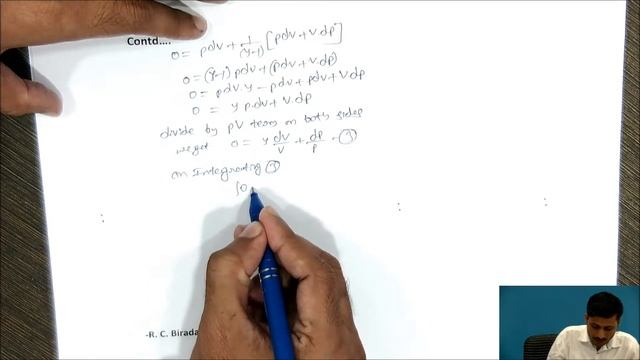 Contd....
0 = pdv + 1/(γ-1) [pdv + v.dp]
0 = (γ-1) pdv + (pdv + v.dp)
0 = pdv.γ - pdv + pdv + v.dp
0 = γ p.dv + v.dp
divide by pV term on both sides
we get 0 = γ dv/v + dp/p - ③
on Integrating ③
∫0
-R. C. Birada